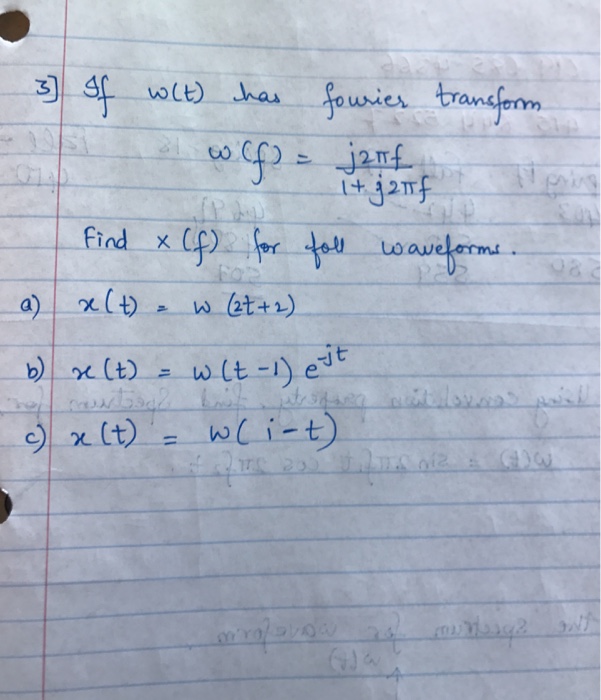 3] If w(t) has fourier transform
w(f) = j2πf / 1 + j2πf
Find x(f) for foll waveforms.
a) x(t) = w (2t+2)
b) x(t) = w(t-1) e^-jt
c) x(t) = w( i-t)